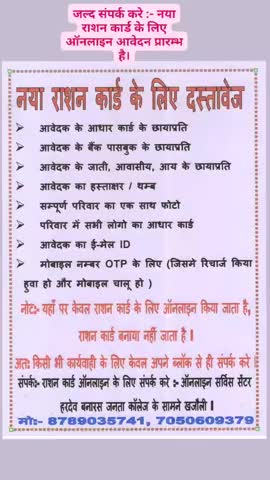 जल्द संपर्क करे :- नया
राशन कार्ड के लिए
ऑनलाइन आवेदन प्रारम्भ
है।
नया राशन कार्ड के लिए दस्तावेज
➢ आवेदक के आधार कार्ड के छायाप्रति
➢ आवेदक के बैंक पासबुक के छायाप्रति
➢ आवेदक के जाती, आवासीय, आय के छायाप्रति
➢ आवेदक का हस्ताक्षर / थम्ब
➢ सम्पूर्ण परिवार का एक साथ फोटो
➢ परिवार में सभी लोगो का आधार कार्ड
➢ आवेदक का ई-मेल ID
➢ मोबाइल नम्बर OTP के लिए (जिसमे रिचार्ज किया
हुवा हो और मोबाइल चालू हो )
नोट:- यहाँ पर केवल राशन कार्ड के लिए ऑनलाइन किया जाता है,
राशन कार्ड बनाया नहीं जाता है।
अतः किसी भी कार्यवाही के लिए केवल अपने ब्लॉक से ही संपर्क करे।
संपर्क:- राशन कार्ड ऑनलाइन के लिए संपर्क करे :- ऑनलाइन सर्विस सेंटर
हरदेव बनारस जनता कॉलेज के सामने खजौली।
मो:- 8789035741, 7050609379